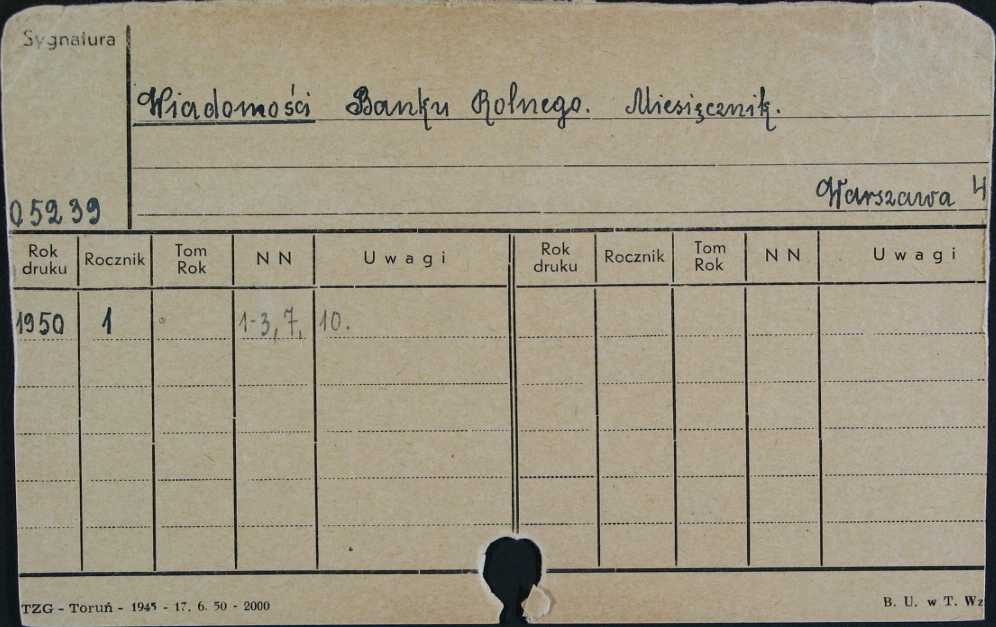 Sygnatura
Wiadomości Banku Rolnego. Miesięcznik.
Warszawa 4
05239
Rok druku Rocznik Tom Rok NN Uwagi Rok druku Rocznik Tom Rok NN Uwagi
1950 1 1-3, 7, 10.
TZG - Toruń - 1945 - 17. 6. 50 - 2000 B. U. w T. Wz